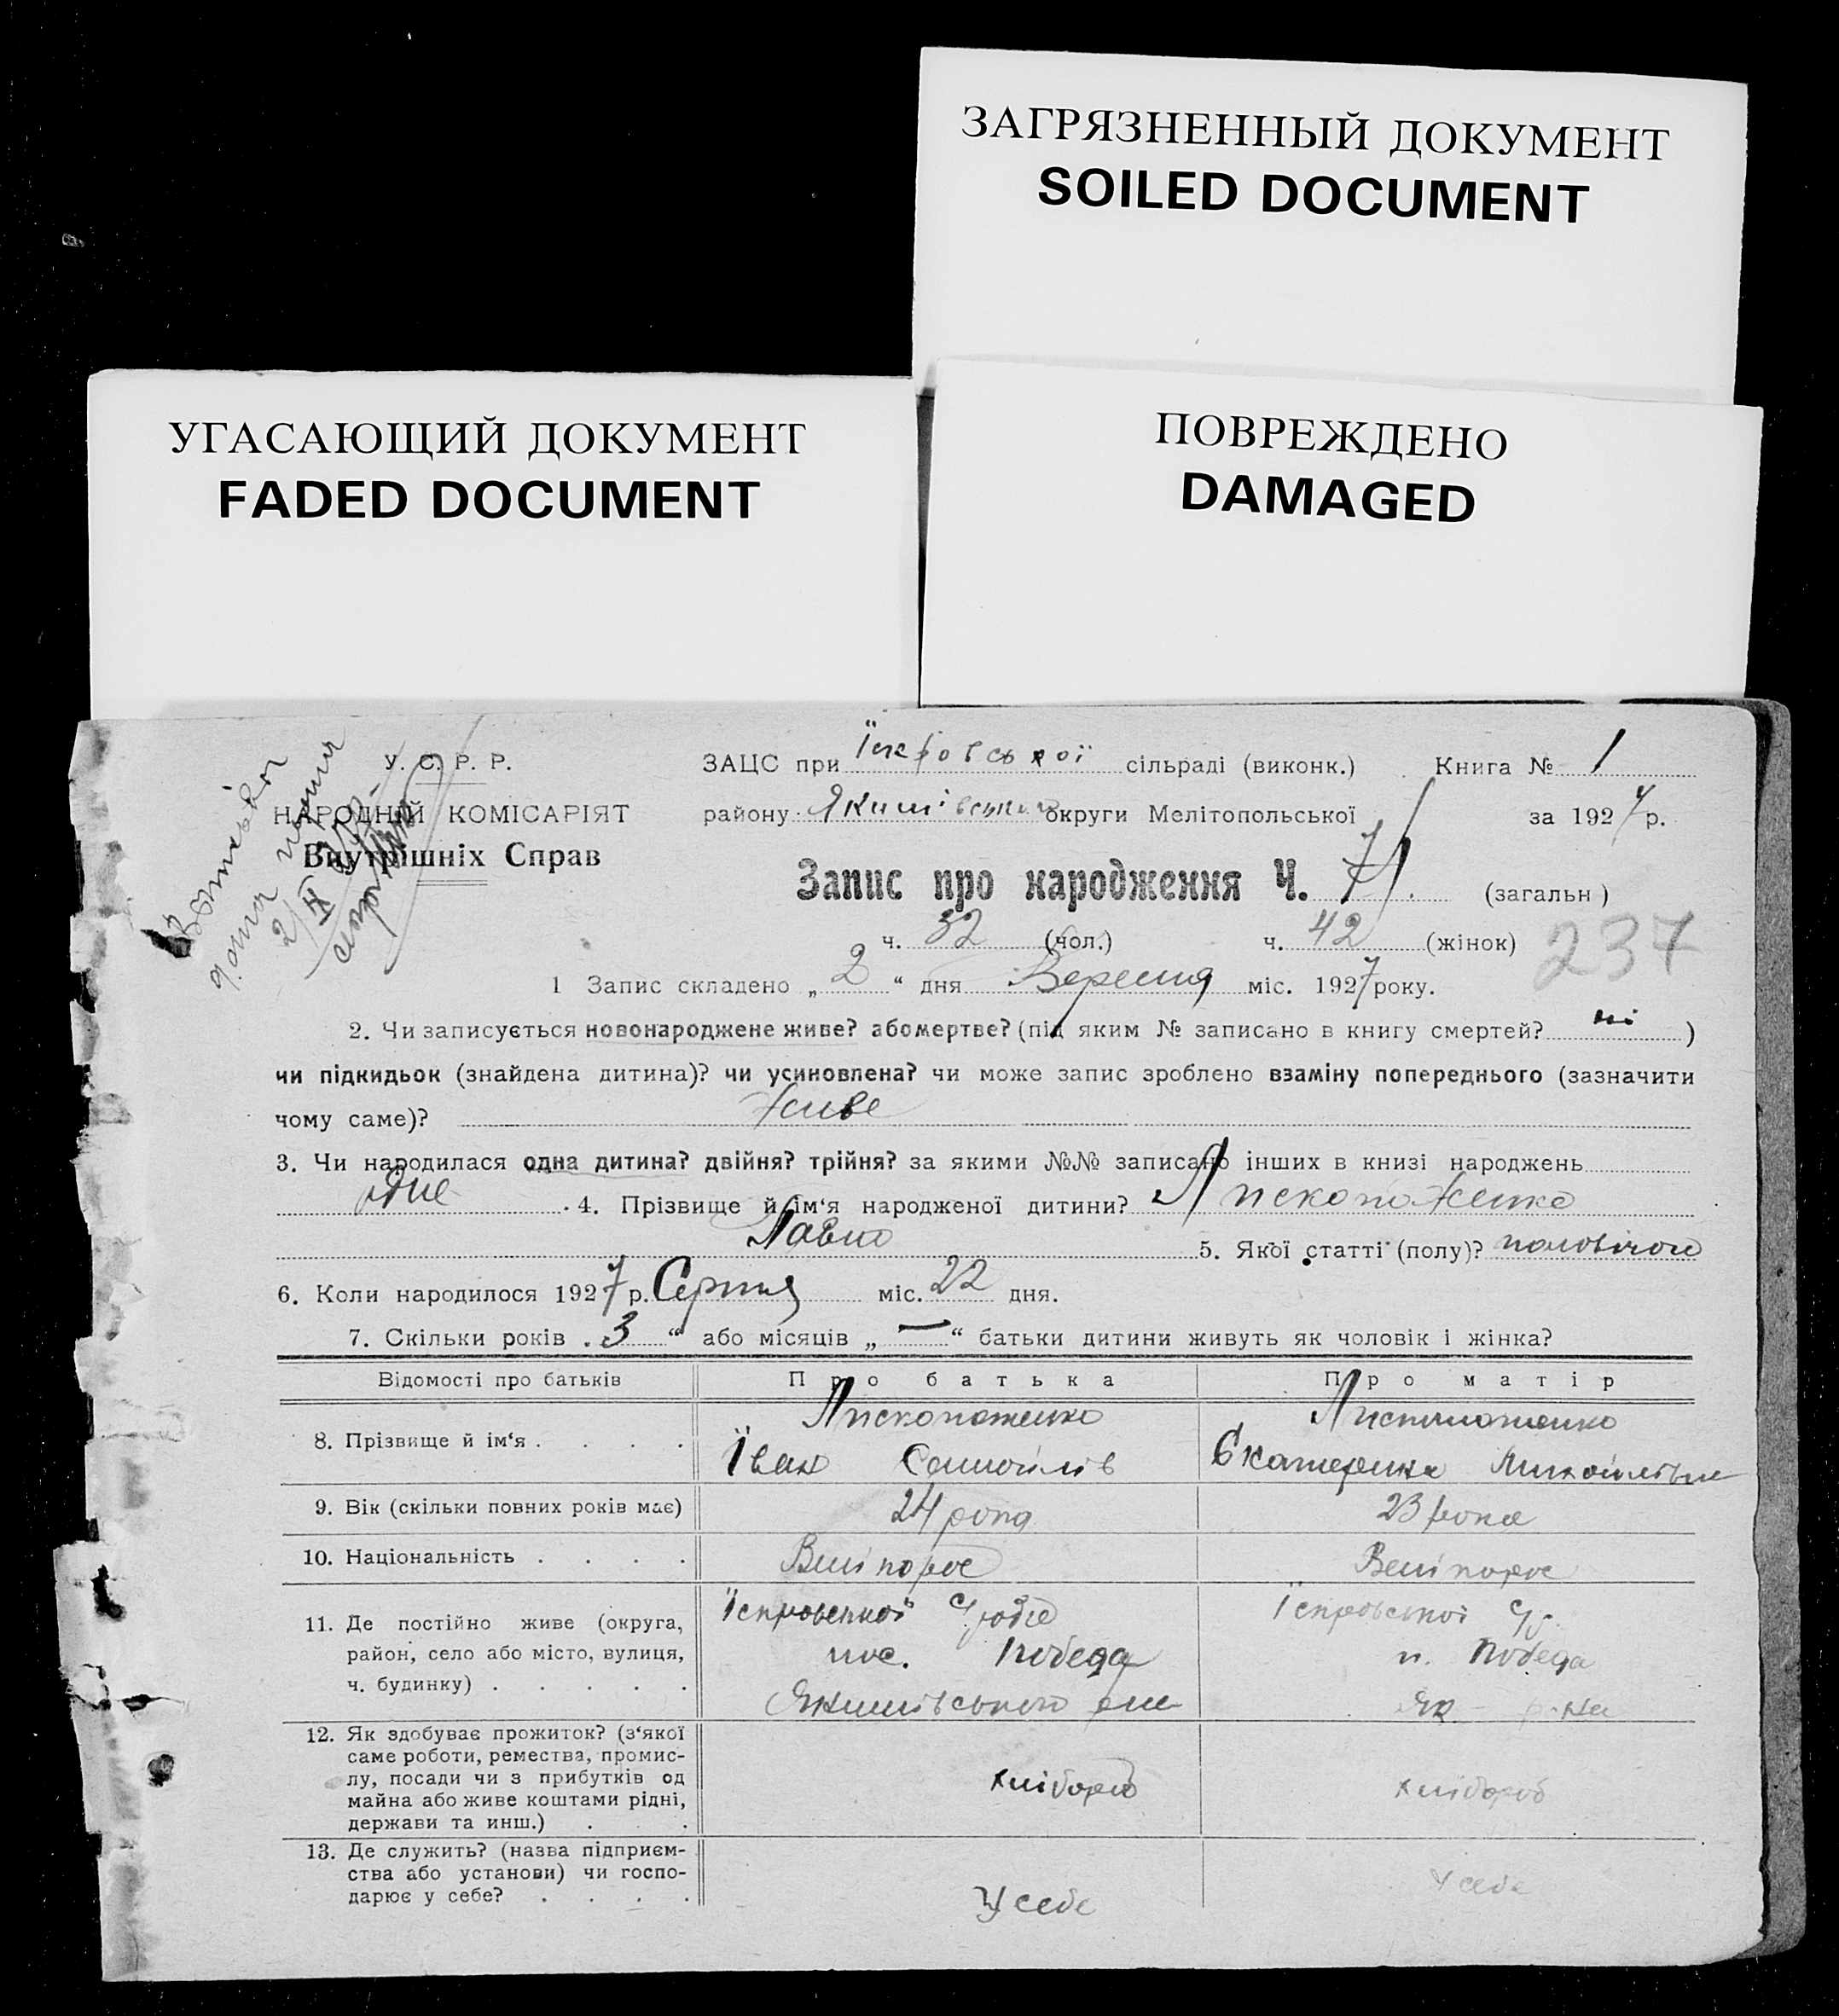 ЗАГРЯЗНЕННЫЙ ДОКУМЕНТ
SOILED DOCUMENT
УГАСАЮЩИЙ ДОКУМЕНТ
FADED DOCUMENT
ПОВРЕЖДЕНО
DAMAGED
У. С. Р. Р.
НАРОДНІЙ КОМІСАРІЯТ
Внутрішніх Справ
ЗАЦС при сільраді (виконк.) Книга № 1
району Якимівського округи Мелітопольської за 1927 р.
Запис про народження Ч. 71. (загальн)
ч. 32 (чол.) ч. 42 (жінок) 237
1 Запис складено „ 2 “ дня Вересня міс. 1927 року.
2. Чи записується новонароджене живе? або мертве? (під яким № записано в книгу смертей? ні )
чи підкидьок (знайдена дитина)? чи усиновлена? чи може запис зроблено взаміну попереднього (зазначити
чому саме)? живе
3. Чи народилася одна дитина? двійня? трійня? за якими №№ записано інших в книзі народжень
4. Прізвище й ім‘я народженої дитини? Лископоженко
Павло 5. Якої статті (полу)?
6. Коли народилося 1927 р. Серпня міс. 22 дня.
7. Скільки років „ 3 “ або місяців „ — “ батьки дитини живуть як чоловік і жінка?
Відомості про батьків Про батька Про матір
Лископоженко
8. Прізвище й ім‘я . . . . Іван Самойлів Екатерина Михайлівна
9. Вік (скільки повних років має) 24 рока 23 рока
10. Національність . . . . Велікорос Велікорос
11. Де постійно живе (округа,
район, село або місто, вулиця, пос. Победа п. Победа
ч. будинку) . . . . . Якимівського р-на Як - р-на
12. Як здобуває прожиток? (з‘якої
саме роботи, ремества, промис-
лу, посади чи з прибутків од хлібороб хлібороб
майна або живе коштами рідні,
держави та инш.) . . .
13. Де служить? (назва підприєм-
ства або установи) чи госпо- У себе
дарює у себе? . . . . У себе